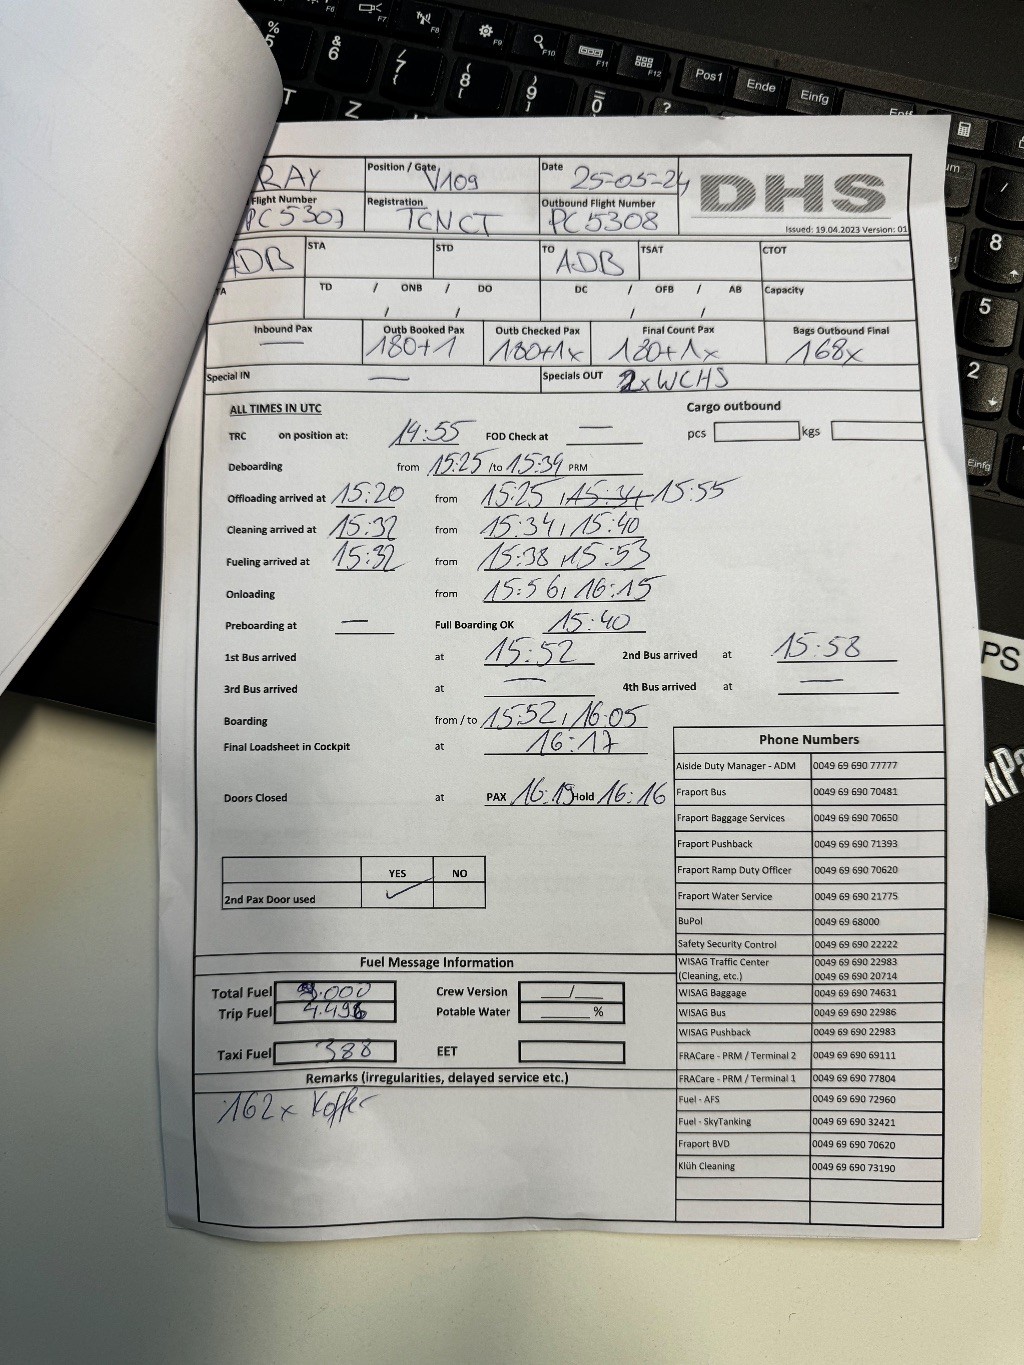 F6 F7 F8 F9 F10 F11 F12
% 5 & 6 / 7 { ( 8 [ ) 9 ] = 0 } ? Pos1 Ende Einfg Entf
T Z
RAY Position / Gate V109 Date 25-05-24 DHS
Flight Number PC5307 Registration TCNCT Outbound Flight Number PC5308 Issued: 19.04.2023 Version: 01
ADB STA STD TO ADB TSAT CTOT
TA TD / ONB / DO DC / OFB / AB Capacity
/ / / /
Inbound Pax — Outb Booked Pax 180+1 Outb Checked Pax 180+1x Final Count Pax 180+1x Bags Outbound Final 168x
Special IN — Specials OUT 2xWCHS
ALL TIMES IN UTC Cargo outbound
TRC on position at: 14:55 FOD Check at — pcs kgs
Deboarding from 15:25 /to 15:34 PRM
Offloading arrived at 15:20 from 15:25, 15:34 15:55
Cleaning arrived at 15:32 from 15:34, 15:40
Fueling arrived at 15:32 from 15:38, 15:53
Onloading from 15:56, 16:15
Preboarding at — Full Boarding OK 15:40
1st Bus arrived at 15:52 2nd Bus arrived at 15:58
3rd Bus arrived at — 4th Bus arrived at —
Boarding from / to 15:52, 16:05
Final Loadsheet in Cockpit at 16:17
Doors Closed at PAX 16:19 Hold 16:16
YES NO
2nd Pax Door used ✓
Fuel Message Information
Total Fuel .000 Crew Version /
Trip Fuel 4.496 Potable Water %
Taxi Fuel 388 EET
Remarks (irregularities, delayed service etc.)
162x Koffer
Phone Numbers
Aiside Duty Manager - ADM 0049 69 690 77777
Fraport Bus 0049 69 690 70481
Fraport Baggage Services 0049 69 690 70650
Fraport Pushback 0049 69 690 71393
Fraport Ramp Duty Officer 0049 69 690 70620
Fraport Water Service 0049 69 690 21775
BuPol 0049 69 68000
Safety Security Control 0049 69 690 22222
WISAG Traffic Center 0049 69 690 22983
(Cleaning, etc.) 0049 69 690 20714
WISAG Baggage 0049 69 690 74631
WISAG Bus 0049 69 690 22986
WISAG Pushback 0049 69 690 22983
FRACare - PRM / Terminal 2 0049 69 690 69111
FRACare - PRM / Terminal 1 0049 69 690 77804
Fuel - AFS 0049 69 690 72960
Fuel - SkyTanking 0049 69 690 32421
Fraport BVD 0049 69 690 70620
Klüh Cleaning 0049 69 690 73190
/
8
5
2
Einfg
PS